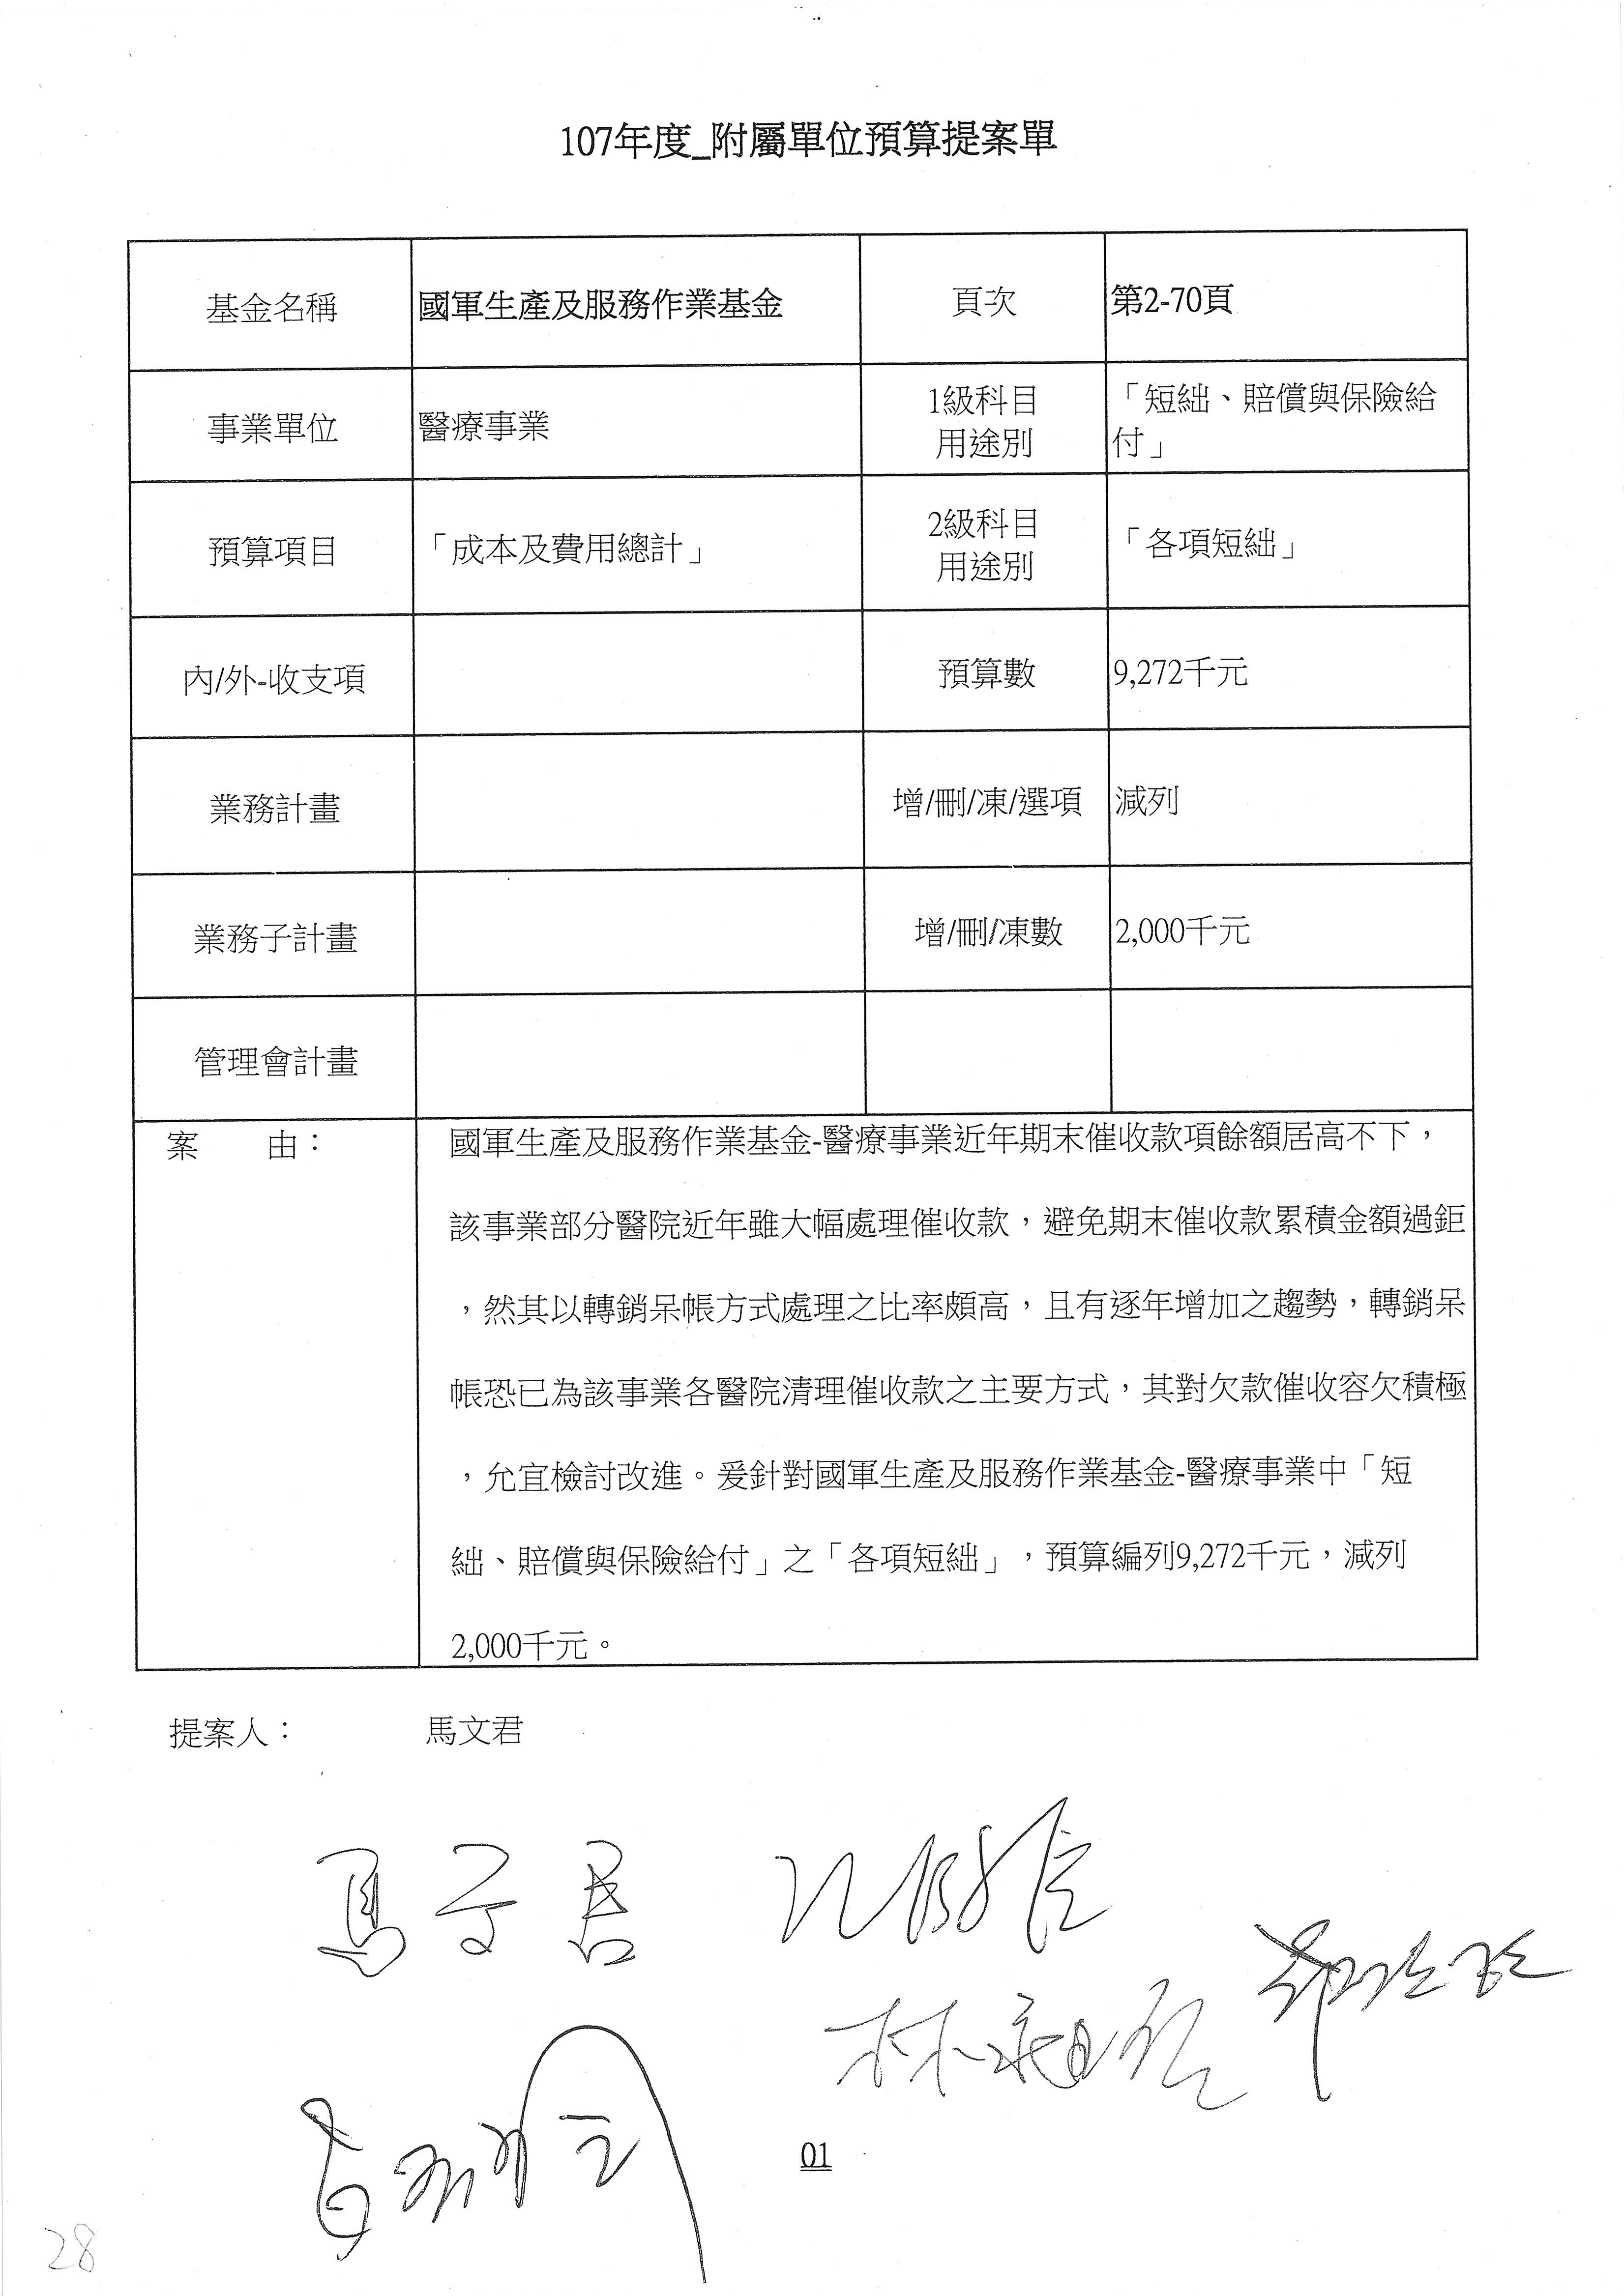 107年度_附屬單位預算提案單
基金名稱 國軍生產及服務作業基金 頁次 第2-70頁
事業單位 醫療事業 1級科目 用途別 「短絀、賠償與保險給
付」
預算項目 「成本及費用總計」 2級科目 用途別 「各項短絀」
內/外-收支項 預算數 9,272千元
業務計畫 增/刪/凍/選項 減列
業務子計畫 增/刪/凍數 2,000千元
管理會計畫
案 由： 國軍生產及服務作業基金-醫療事業近年期末催收款項餘額居高不下，
該事業部分醫院近年雖大幅處理催收款，避免期末催收款累積金額過鉅
，然其以轉銷呆帳方式處理之比率頗高，且有逐年增加之趨勢，轉銷呆
帳恐已為該事業各醫院清理催收款之主要方式，其對欠款催收容欠積極
，允宜檢討改進。爰針對國軍生產及服務作業基金-醫療事業中「短
絀、賠償與保險給付」之「各項短絀」，預算編列9,272千元，減列
2,000千元。
提案人： 馬文君
馬文君
01
28